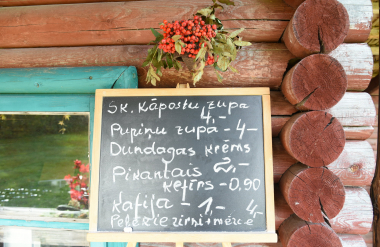 Sk. Kāpostu zupa
4,-
Pupiņu zupa - 4-
Dundagas krēms
2,-
Pikantais
kefīrs - 0,90
Kafija - 1-
4,-
Pelēkie zirņi + mērce